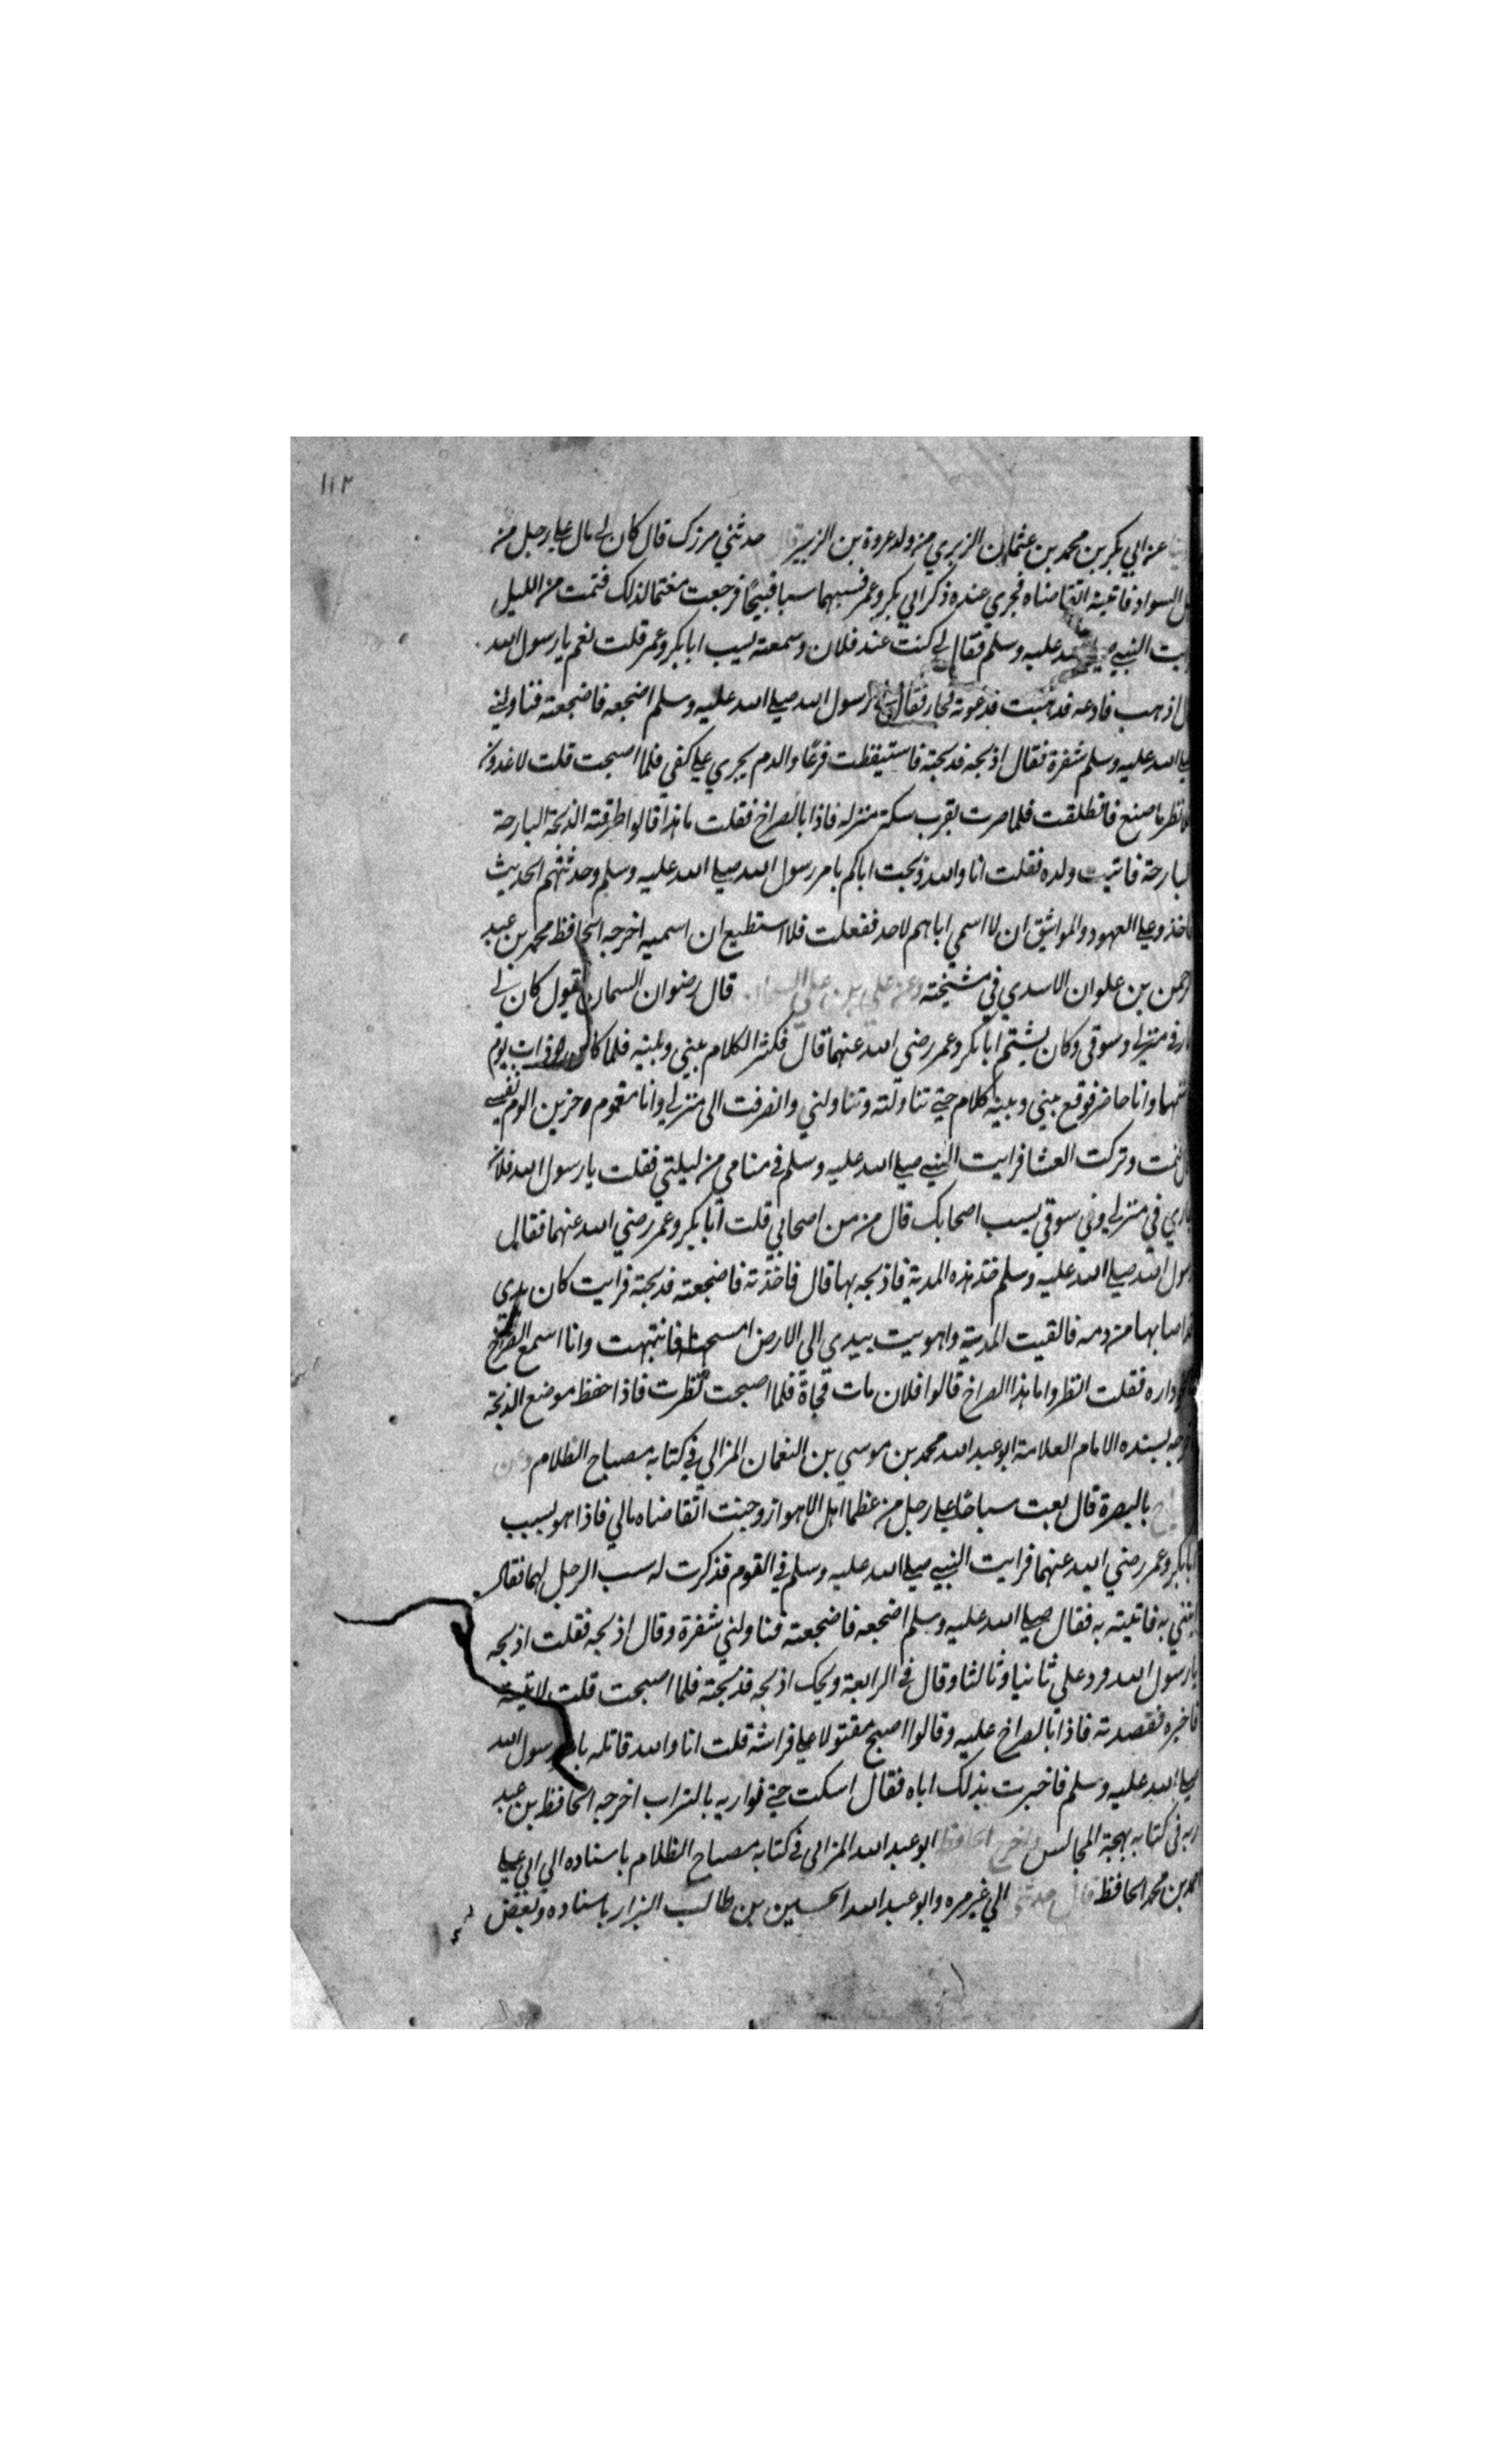 ١١٢
عن ابي بكر بن محمد بن عثمان الزبيري من ولد عروة بن الزبير قال حدثني مرزك قال كان لي مال علي رجل من
السواد فاتيته اتقاضاه فجري عنده ذكر ابي بكر وعمر فسبهما سبا قبيحًا فرجعت مغتما لذلك فنمت من الليل
النبي صلي الله عليه وسلم فقال لي كنت عند فلان وسمعته يسب ابا بكر وعمر قلت نعم يا رسول الله
اذهب فادعه فذهبت فدعوته فجا فقال لي رسول الله صلي الله عليه وسلم اضجعه فاضجعته فناولني
الله عليه وسلم شفرة فقال اذبحه فذبحته فاستيقظت فزعًا والدم يجري علي كفي فلما اصبحت قلت لاغدون
انظر ما صنع فانطلقت فلما صرت بقرب سكة منزله فاذا بالصراخ فقلت ما هذا قالوا طرقته الذبحة البارحة
البارحة فاتيت ولده فقلت انا والله ذبحت اباكم بامر رسول الله صلي الله عليه وسلم وحدثتهم الحديث
فاخذو علي العهود والمواثيق ان لا اسمي اباهم لاحد ففعلت فلا استطيع ان اسميه اخرجه الحافظ محمد بن عبد
الرحمن بن علوان الاسدي في مشيخته وعن علي بن علي السمان قال رضوان السمان يقول كان لي
جار في منزلي وسوقي وكان يشتم ابا بكر وعمر رضي الله عنهما قال فكثر الكلام بيني وبينه فلما كان ذات يوم
شتمهما وانا حاضر فوقع بيني وبينه كلام حتي تناولته وتناولني وانصرفت الى منزلي وانا مغموم حزين الوم نفسي
فنمت وتركت العشا فرايت النبي صلي الله عليه وسلم في منامي من ليلتي فقلت يا رسول الله فلان
جاري في منزلي وفي سوقي يسب اصحابك قال من من اصحابي قلت ابا بكر وعمر رضي الله عنهما فقال
رسول الله صلي الله عليه وسلم خذ هذه المدية فاذبحه بها قال فاخذته فاضجعته فذبحته فرايت كان يدي
اصابها من دمه فالقيت المدية واهويت بيدي الى الارض امسحها فانتبهت وانا اسمع الصراخ
داره فقلت انظروا ما هذا الصراخ قالوا فلان مات فجاة فلما اصبحت نظرت فاذا خط موضع الذبحة
اخرجه بسنده الامام العلامة ابو عبد الله محمد بن موسي بن النعمان المزالي في كتابه مصباح الظلام وعن
بالبصرة قال بعت سباخا علي رجل من عظما اهل الاهواز وجئت اتقاضاه مالي فاذا هو يسب
ابا بكر وعمر رضي الله عنهما فرايت النبي صلي الله عليه وسلم في القوم فذكرت له سب الرجل لهما فقال
ايتني به فاتيته به فقال صلي الله عليه وسلم اضجعه فاضجعته فناولني شفرة وقال اذبحه فقلت اذبحه
يا رسول الله فرد علي ثانيا وثالثا وقال في الرابعة ويحك اذبحه فذبحته فلما اصبحت قلت لاتينه
فاخبره فقصدته فاذا بالصراخ عليه وقالوا اصبح مقتولا علي فراشه قلت انا والله قاتله بامر رسول الله
صلي الله عليه وسلم فاخبرت بذلك اباه فقال اسكت حتي نواريه بالتراب اخرجه الحافظ بن عبد
ربه في كتابه بهجة المجالس واخرج الحافظ ابو عبد الله المزالى في كتابه مصباح الظلام باسناده الى ابي علي
محمد بن محمد الحافظ قال حدثنا الي غير مره وابو عبد الله الحسين بن طالب البزار باسناده وبعض